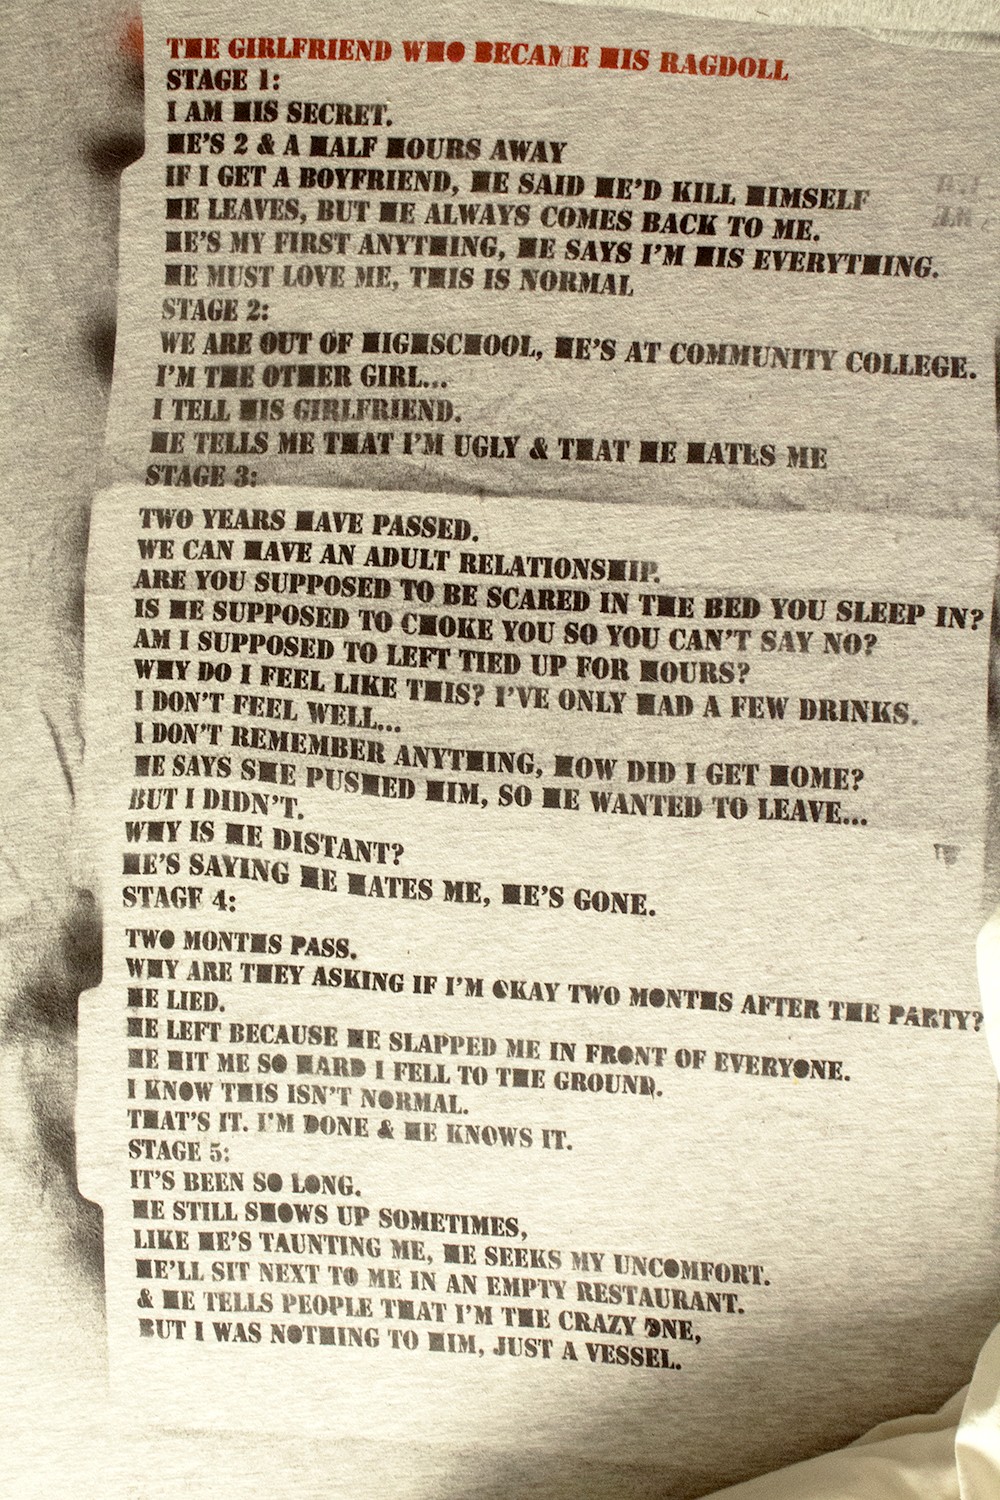 THE GIRLFRIEND WHO BECAME HIS RAGDOLL
STAGE 1:
I AM HIS SECRET.
HE'S 2 & A HALF HOURS AWAY
IF I GET A BOYFRIEND, HE SAID HE'D KILL HIMSELF
HE LEAVES, BUT HE ALWAYS COMES BACK TO ME.
HE'S MY FIRST ANYTHING, HE SAYS I'M HIS EVERYTHING.
HE MUST LOVE ME, THIS IS NORMAL
STAGE 2:
WE ARE OUT OF HIGHSCHOOL, HE'S AT COMMUNITY COLLEGE.
I'M THE OTHER GIRL...
I TELL HIS GIRLFRIEND.
HE TELLS ME THAT I'M UGLY & THAT HE HATES ME
STAGE 3:
TWO YEARS HAVE PASSED.
WE CAN HAVE AN ADULT RELATIONSHIP.
ARE YOU SUPPOSED TO BE SCARED IN THE BED YOU SLEEP IN?
IS HE SUPPOSED TO CHOKE YOU SO YOU CAN'T SAY NO?
AM I SUPPOSED TO LEFT TIED UP FOR HOURS?
WHY DO I FEEL LIKE THIS? I'VE ONLY HAD A FEW DRINKS.
I DON'T FEEL WELL...
I DON'T REMEMBER ANYTHING, HOW DID I GET HOME?
HE SAYS SHE PUSHED HIM, SO HE WANTED TO LEAVE...
BUT I DIDN'T.
WHY IS HE DISTANT?
HE'S SAYING HE HATES ME, HE'S GONE.
STAGE 4:
TWO MONTHS PASS.
WHY ARE THEY ASKING IF I'M OKAY TWO MONTHS AFTER THE PARTY?
HE LIED.
HE LEFT BECAUSE HE SLAPPED ME IN FRONT OF EVERYONE.
HE HIT ME SO HARD I FELL TO THE GROUND.
I KNOW THIS ISN'T NORMAL.
THAT'S IT. I'M DONE & HE KNOWS IT.
STAGE 5:
IT'S BEEN SO LONG.
HE STILL SHOWS UP SOMETIMES,
LIKE HE'S TAUNTING ME, HE SEEKS MY UNCOMFORT.
HE'LL SIT NEXT TO ME IN AN EMPTY RESTAURANT.
& HE TELLS PEOPLE THAT I'M THE CRAZY ONE,
BUT I WAS NOTHING TO HIM, JUST A VESSEL.